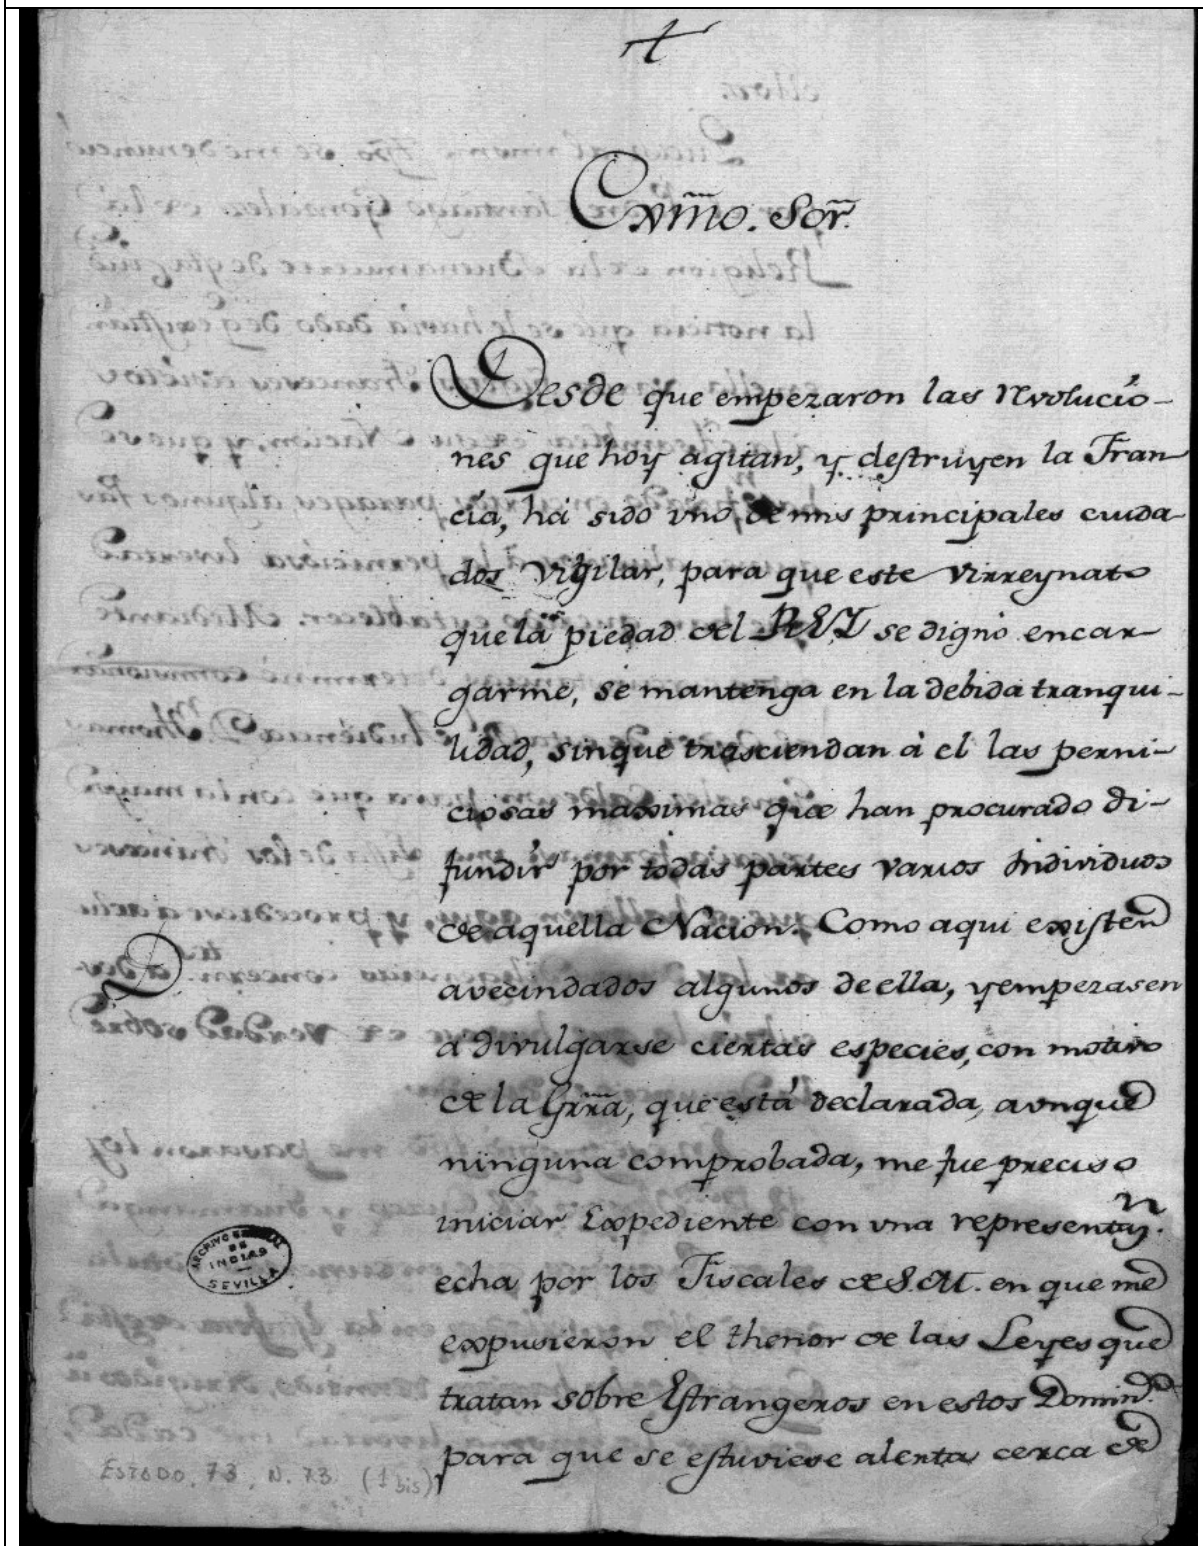 Exm̃o. Sor̃.
Desde que empezaron las revolucio-
nes que hoy agitan, y destruyen la Fran-
cia, ha sido uno de mis principales cuida-
dos vigilar, para que este Virreynato
que la piedad del REY se dignó encar-
garme, se mantenga en la debida tranqui-
lidad, sinque trasciendan à el las perni-
ciosas maximas que han procurado di-
fundir por todas partes varios Individuos
de aquella Nacion. Como aqui existen
avecindados algunos de ella, y empezasen
à divulgarse ciertas especies, con motivo
de la Grr̃a, que está declarada, aunque
ninguna comprobada, me fue preciso
iniciar Expediente con una representan.
echa por los Fiscales de S.M. en que me
expusieron el thenor de las Leyes que
tratan sobre Estrangeros en estos Domin.s
para que se estuviese alerta cerca de
ARCHIVO GENERAL
DE
INDIAS
SEVILLA
ESTADO, 73, N. 73 (1 bis)